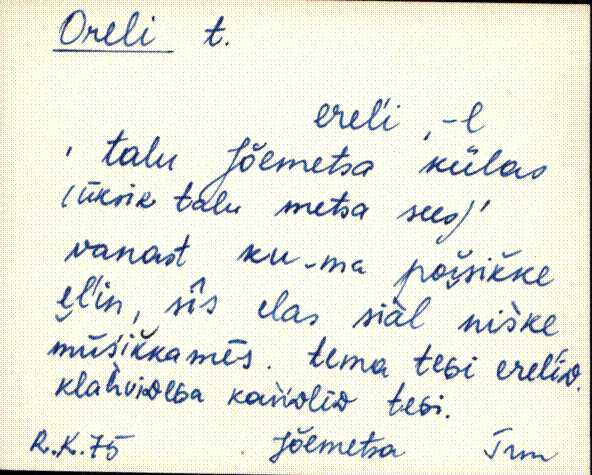 Oreli t.
ereľi, -l
' talu Jõemetsa külas
(üksik talu metsa sees)'
vanast ku‿ma poi̬šikke
el'in, sīs elas siäl niške
mūsikkamēs. tema teɢi erelīd.
klahvideɢa kańdlīd teɢi.
R.K. 75 Jõemetsa Trm